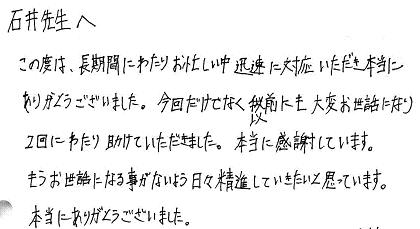 石井先生へ
この度は、長期間にわたりお忙しい中 迅速に対応いただき本当に
ありがとうございました。今回だけでなく以前にも大変お世話になり
2回にわたり助けていただきました。本当に感謝しています。
もうお世話になる事がないよう日々精進していきたいと思っています。
本当にありがとうございました。